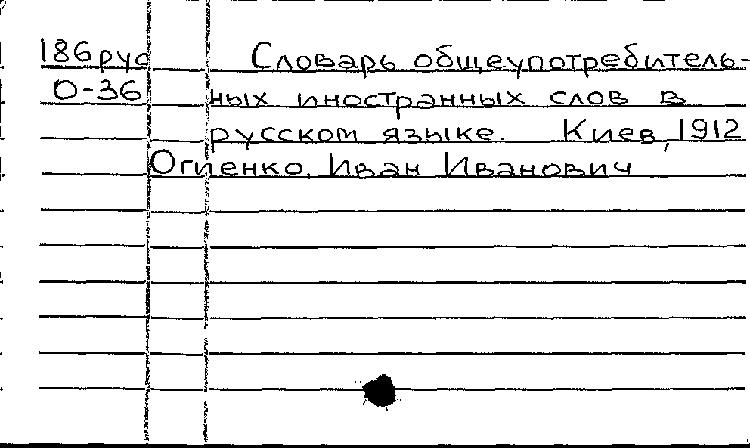 186рус Словарь общеупотребитель-
О-36 ных иностранных слов в
русском языке. Киев, 1912
Огиенко, Иван Иванович